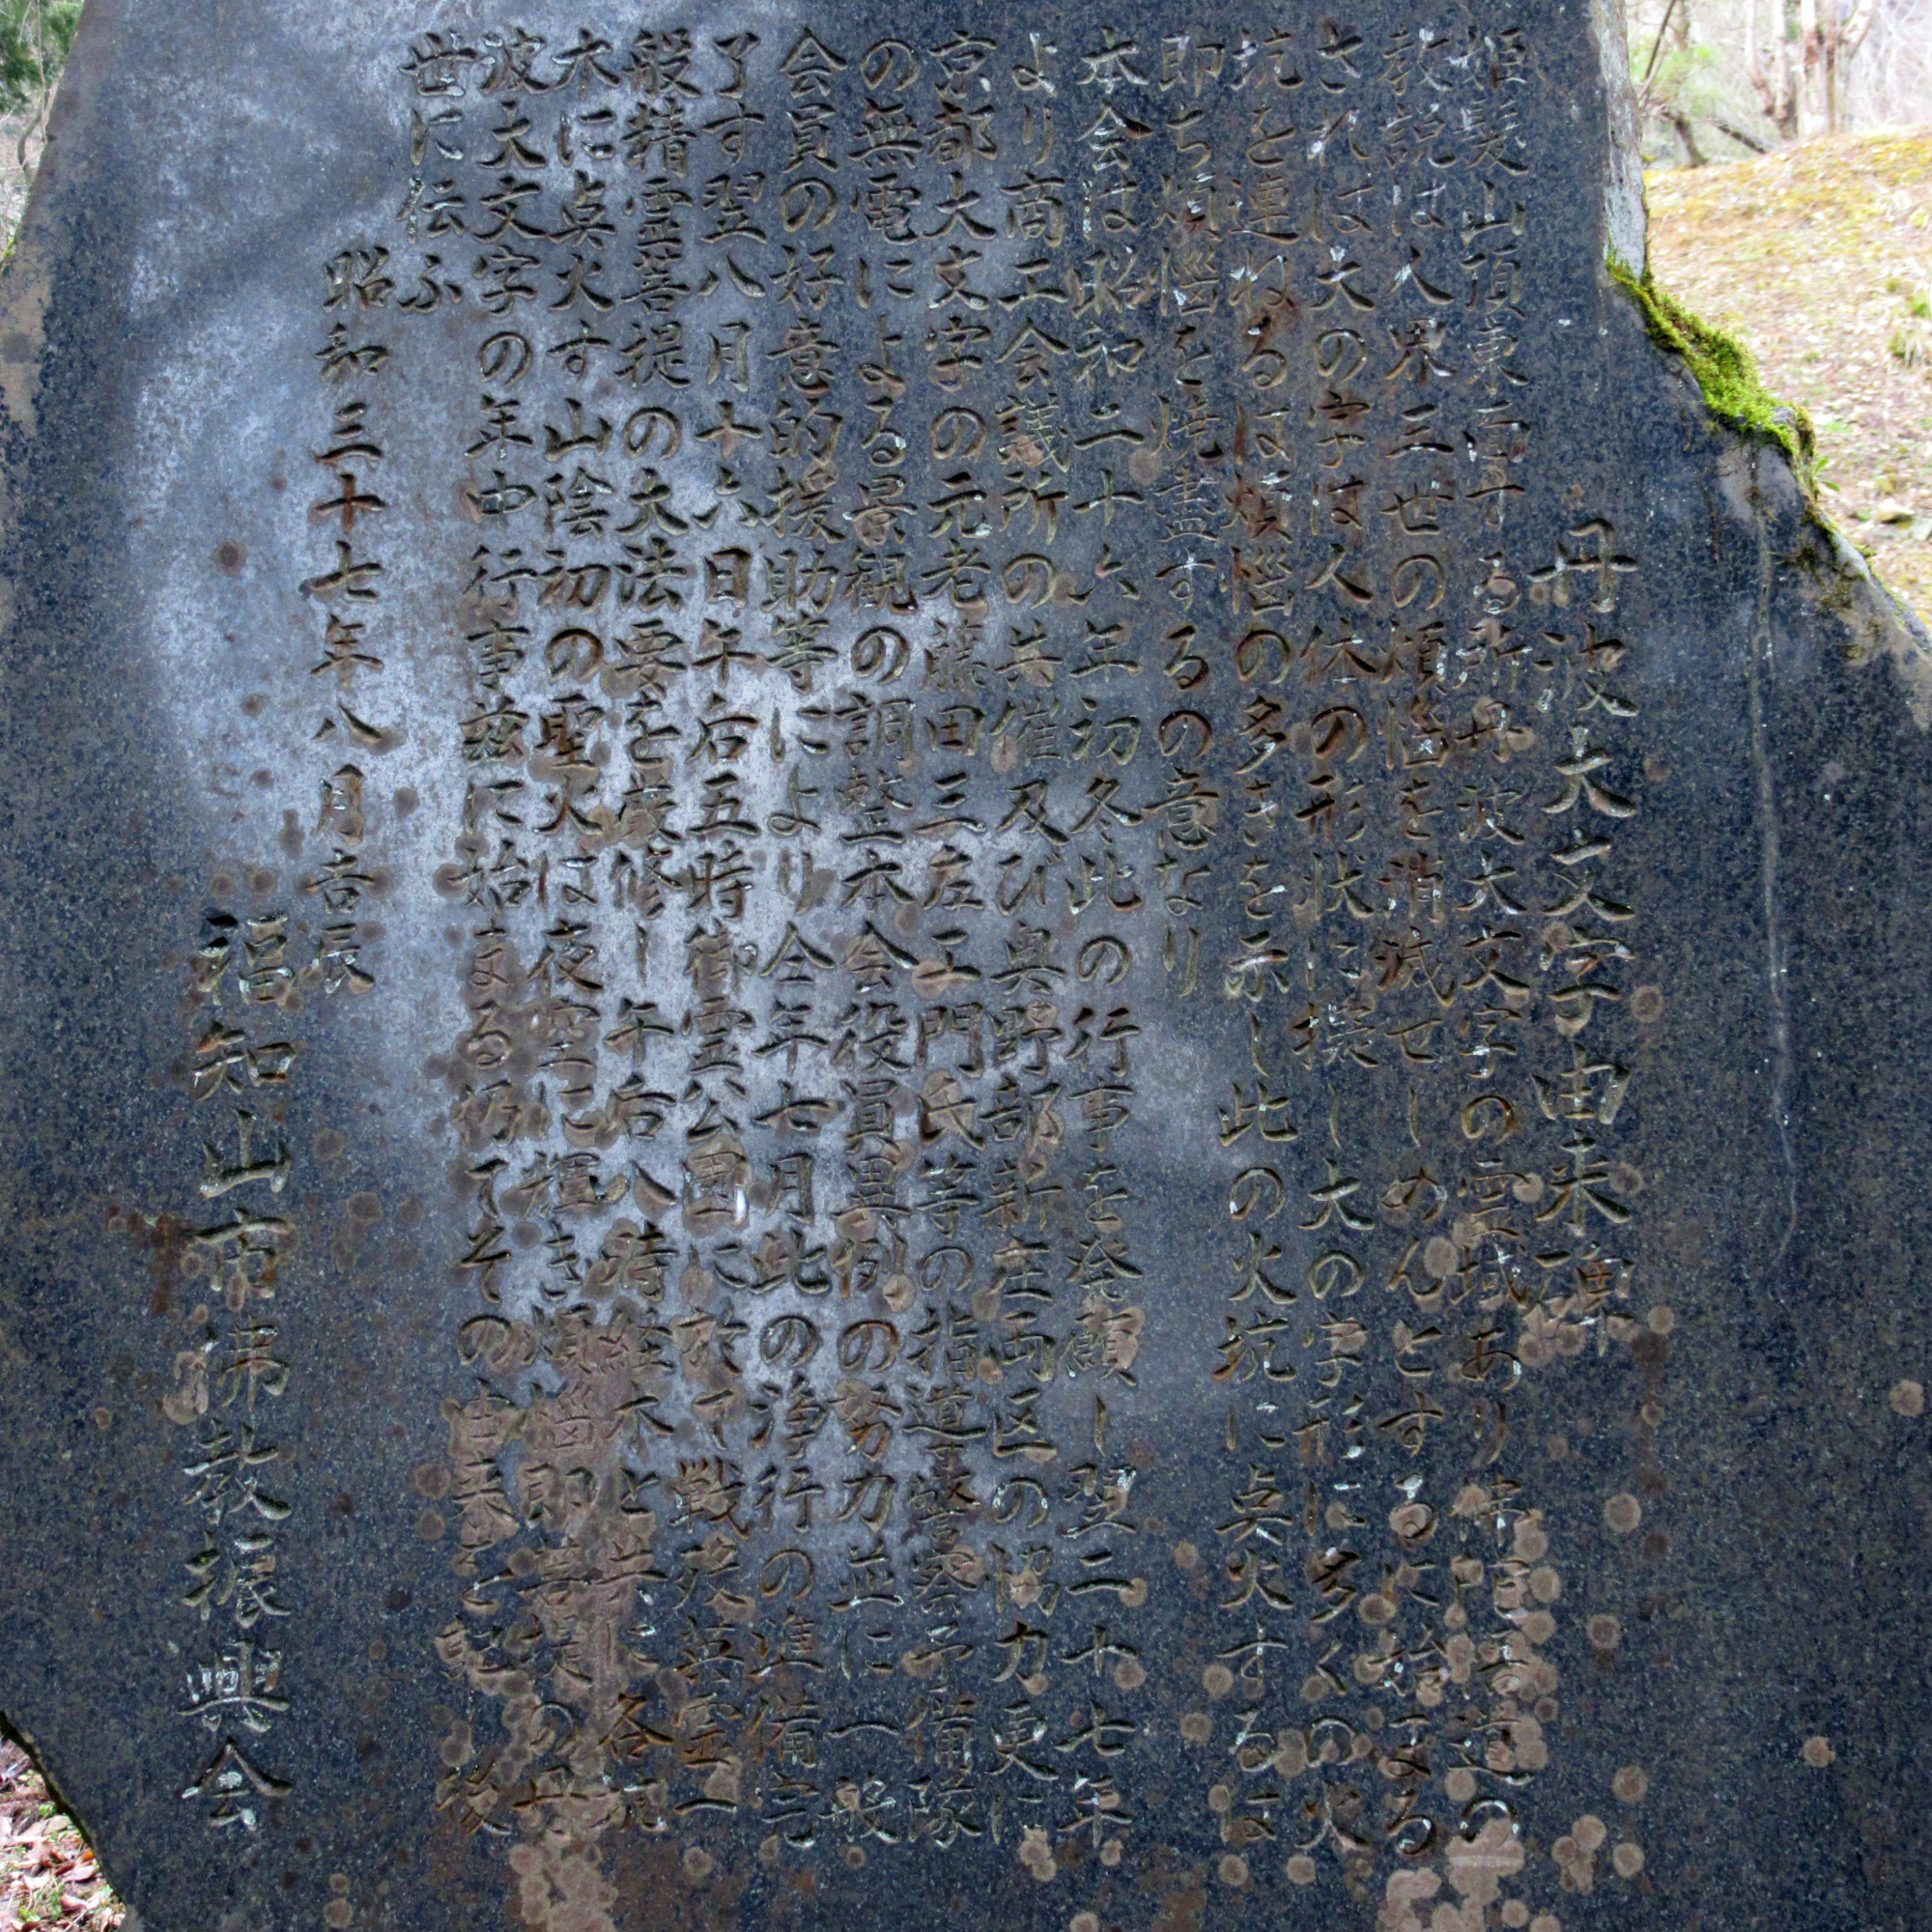 丹波大文字由来碑
姫髪山頂東面する所丹波大文字の霊域あり佛陀言道の
教説は人界三世の煩悩を消滅せしめんとするに始まる
されば大の字は人体の形状に擬し大の字形に多くの火
坑を連ねるは煩悩の多きを示し此の火坑に点火するは
即ち煩悩を焼盡するの意なり
本会は昭和二十六年初冬此の行事を発願し翌二十七年
より商工会議所の共催及び奥野部新庄両区の協力更に
京都大文字の元老藤田三左エ門氏等の指道警察予備隊
の無電による景観の調整本会役員異例の努力並に一般
会員の好意的援助等により仝年七月此の浄行の準備完
了す翌八月十六日午后五時御霊公園に於て戦歿英霊一
般精霊菩提の大法要を厳修し午后八時経木と共に各
木に点火す山陰初の聖火は夜空に輝き煩悩即菩提の丹
波大文字の年中行事茲に始まる仍てその由来を記し後
世に伝ふ
昭和三十七年八月吉辰
福知山市佛教振興会